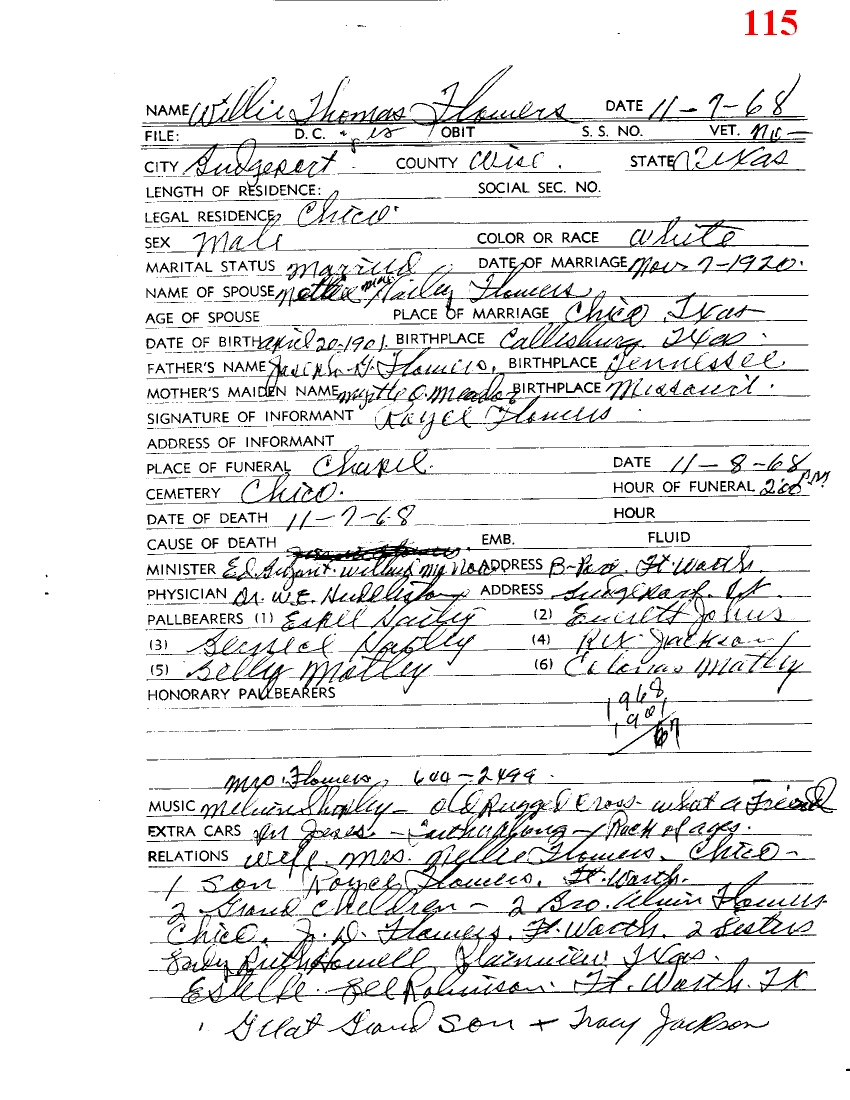 115
NAME Willie Thomas Flowers DATE 11-7-68
FILE: D.C. OBIT S. S. NO. VET. No
CITY Bridgeport COUNTY Wise. STATE Texas
LENGTH OF RESIDENCE: SOCIAL SEC. NO.
LEGAL RESIDENCE Chico.
SEX Male COLOR OR RACE White
MARITAL STATUS Married DATE OF MARRIAGE Nov 7-1920.
NAME OF SPOUSE Nettie Hailey Flowers
AGE OF SPOUSE PLACE OF MARRIAGE Chico Texas
DATE OF BIRTH April 20-1901. BIRTHPLACE Callisburg Texas.
FATHER'S NAME Joseph H. Flowers. BIRTHPLACE Tennessee
MOTHER'S MAIDEN NAME Myrtle O. Meador BIRTHPLACE Missouri.
SIGNATURE OF INFORMANT Royce Flowers
ADDRESS OF INFORMANT
PLACE OF FUNERAL Chapel. DATE 11-8-68
CEMETERY Chico. HOUR OF FUNERAL 2:00 P.M
DATE OF DEATH 11-7-68 HOUR
CAUSE OF DEATH EMB. FLUID
MINISTER Ed ADDRESS B-Port. Ft. Worth.
PHYSICIAN Dr. W.E. Huddleston ADDRESS Bridgeport,
PALLBEARERS (1) Estell Hailey (2) Everett Johns
(3) Hailey (4) Rex Jackson
(5) Billy Matley (6) Matley
HONORARY PALLBEARERS
1968
1901
67
Mrs. Flowers, 644-2499.
MUSIC Melvin Shopley - Old Rugged Cross - What a Friend
EXTRA CARS in Jesus. - Farther along - Rock of ages.
RELATIONS Wife. Mrs. Nellie Flowers. Chico -
1 Son Royce Flowers. Ft. Worth.
2 Grand Children - 2 Bro. Alvin Flowers
Chico, J. D. Flowers. Ft. Worth. 2 Sisters
Ruth Howell Plainview. Texas.
Estelle Robinson. Ft. Worth. TX
1 Great Grand Son + Tracy Jackson